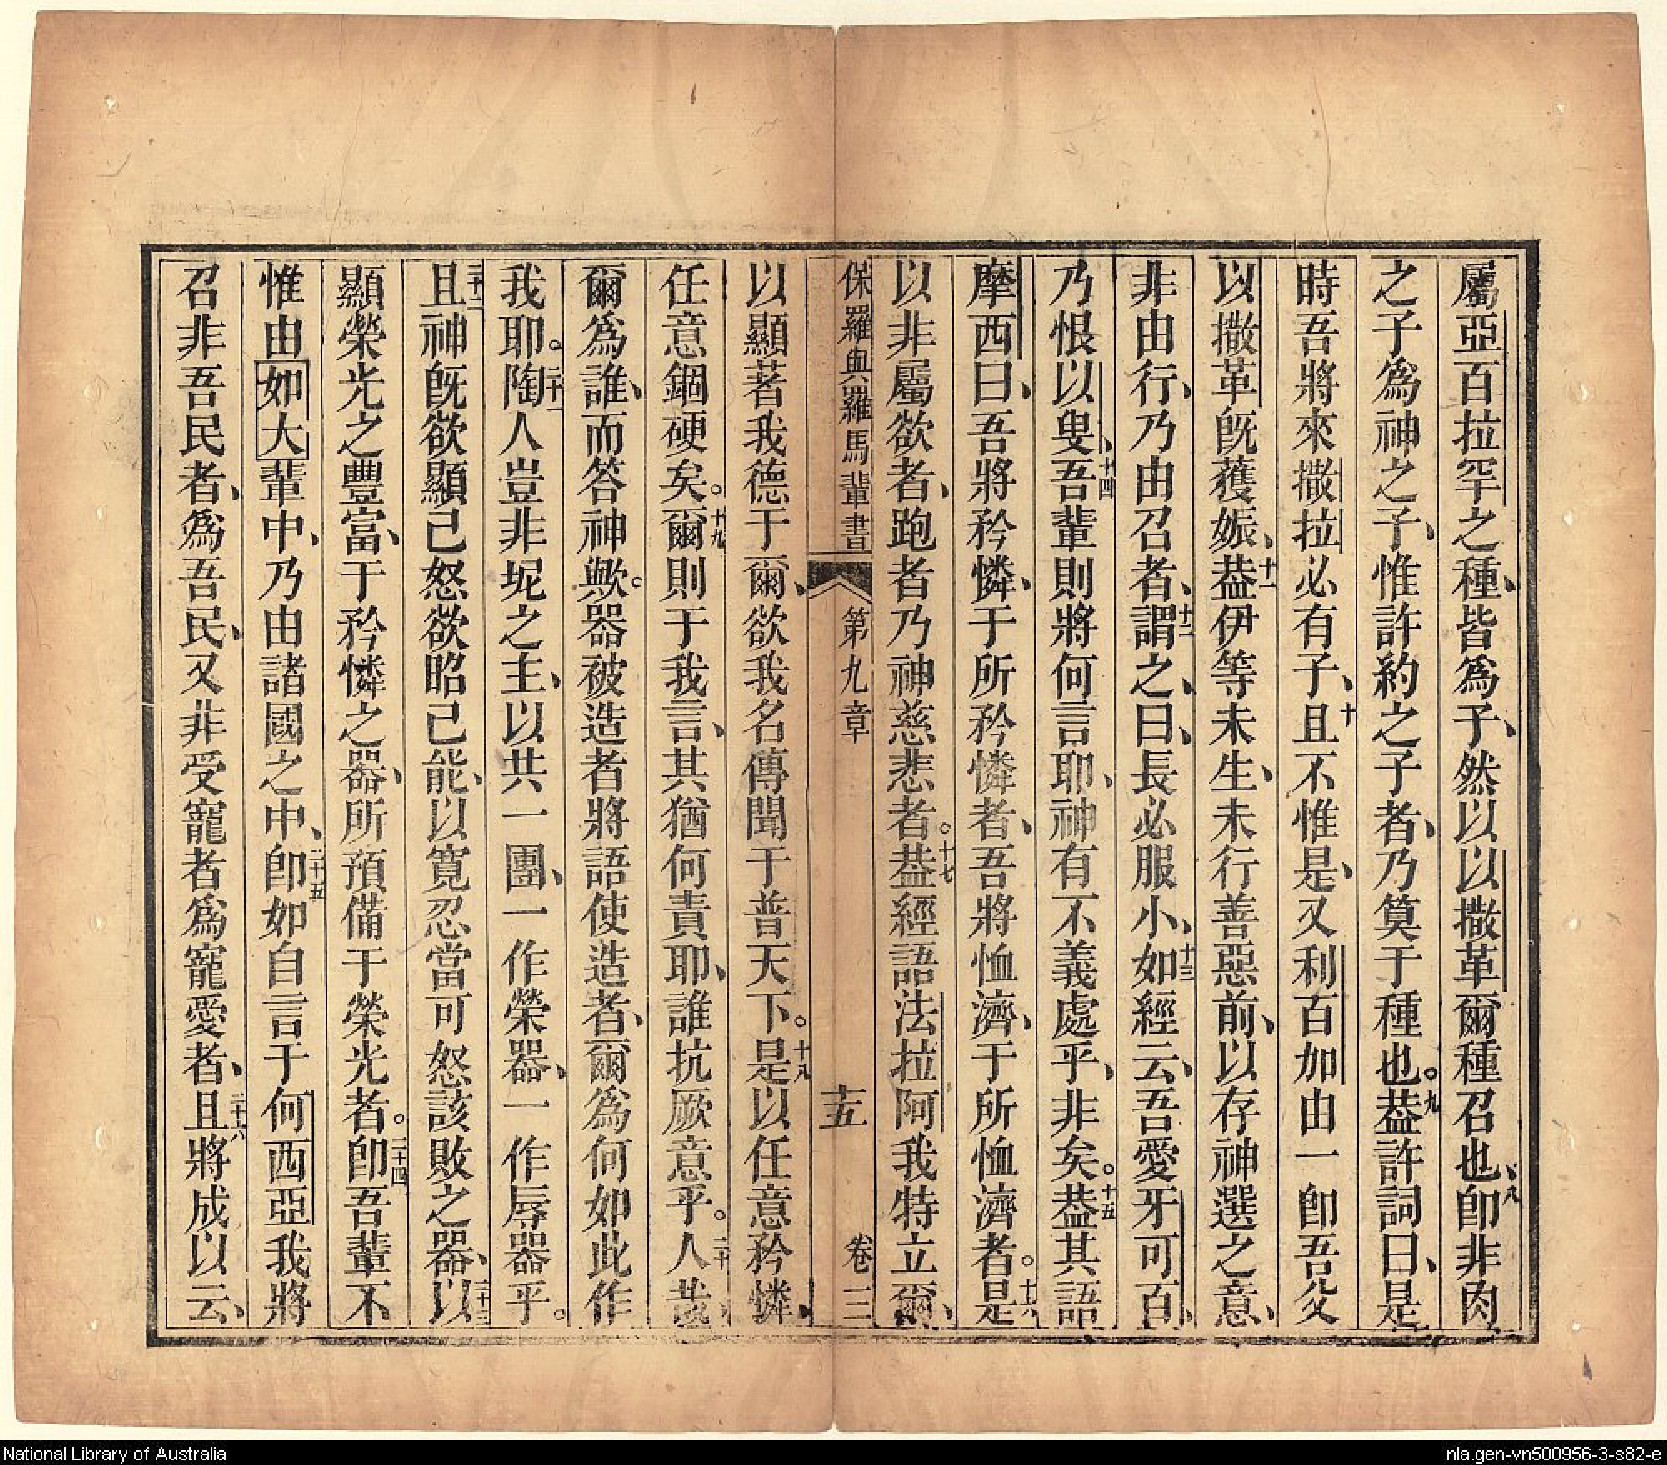 屬亞百拉罕之種、皆爲子、然以以撒革爾種召也、八卽非肉
之子爲神之子、惟許約之子者、乃筭于種也。九葢許詞曰、是
時吾將來撒拉必有子、十且不惟是、又利百加由一卽吾父
以撒革旣獲娠、十一葢伊等未生、未行善惡前、以存神選之意、
非由行、乃由召者、十二謂之、曰、長必服小、十三如經云、吾愛牙可百、
乃恨以叟、十四吾輩則將何言耶、神有不義處乎、非矣。十五葢其語
摩西曰、吾將矜憐、于所矜憐者、吾將恤濟、于所恤濟者。十六是
以非屬欲者、跑者乃神慈悲者。十七葢經語法拉阿我特立爾、
保羅與羅馬輩書 第九章 十五 卷三
以顯著我德于爾、欲我名傳聞于普天下。十八是以任意矜憐、
任意錮硬矣。十九爾則于我言、其猶何責耶、誰抗厥意乎。二十人哉、
爾爲誰、而答神歟。器被造者將語使造者、爾爲何如此作
我耶。二十一陶人豈非坭之主、以共一團、一作榮器、一作辱器乎。
二十二且神旣欲顯己怒欲昭己能、以寬忍當可怒該敗之器、二十三以
顯榮光之豐富、于矜憐之器、所預備于榮光者。二十四卽吾輩不
惟由如大輩中、乃由諸國之中、二十五卽如自言于何西亞我將
召非吾民者、爲吾民、又非受寵者爲寵愛者、二十六且將成以云、
National Library of Australia
nla.gen-vn500956-3-s82-e